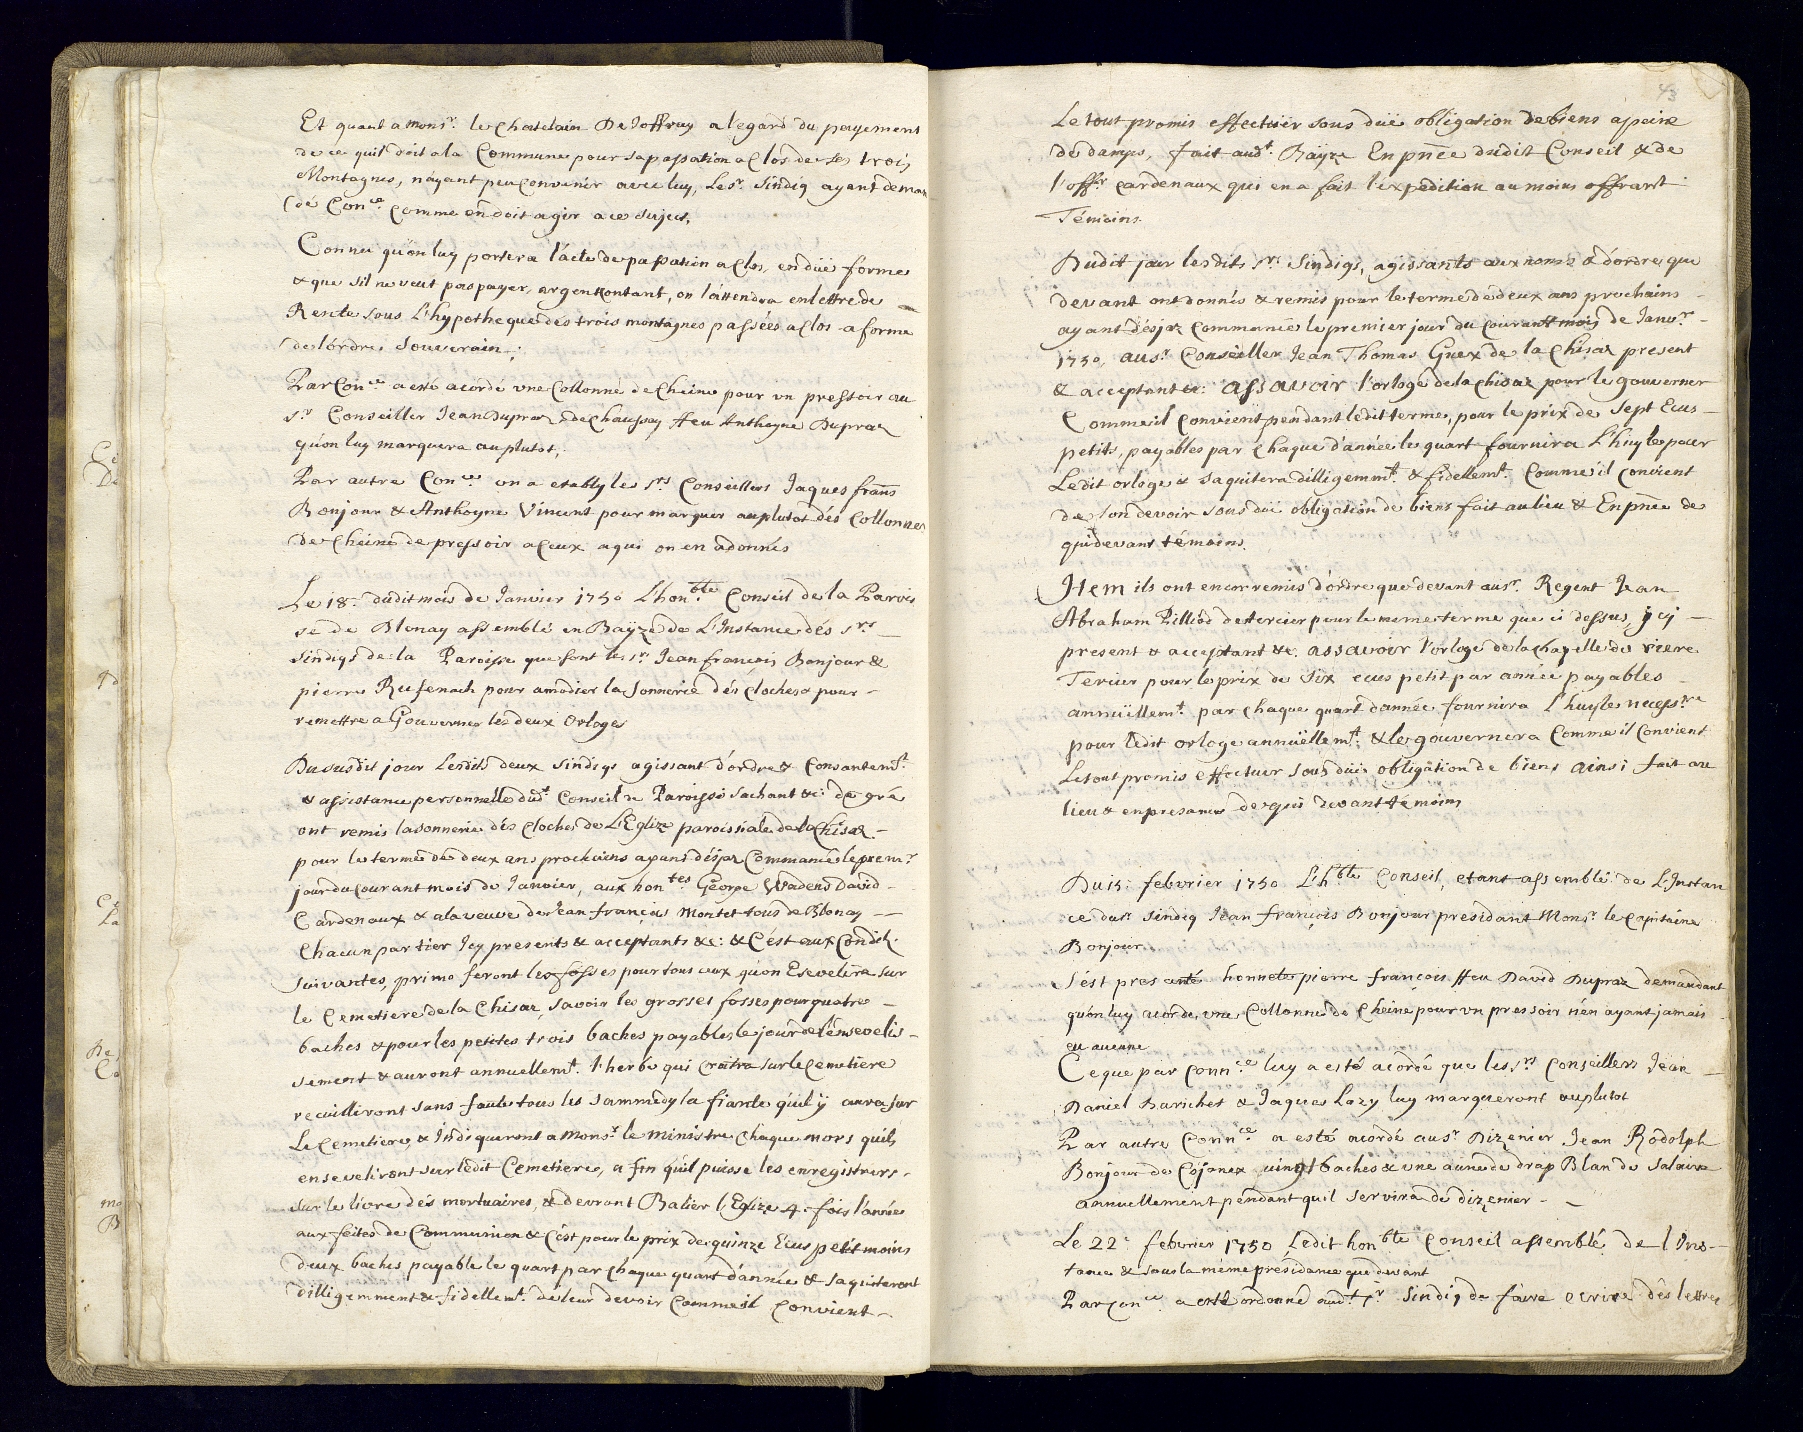 Et quant a monsr. le Chatelain De Joffrey a legard du payement
de ce quil doit ala Commune pour sa passation a Clos de ses trois
Montagnes, nayant peu Convenir avec luy, Le sr. Sindiq ayant deman
dé Conce. Comme en doit agir a ce sujet,
Connu qu'on luy portera l'acte de passation a Clos, en düe forme
& que s'il ne veut pas payer, argent Contant, on l'attendra en lettre de
Rente sous L'hypotheque dés trois montagnes passées a Clos a forme
de lordre Souverain;
Par Conce. a esté acordé vne Collonne de Cheine pour vn pressoir au
sr. Conseiller Jean Dupraz de Chaussey ffeu Anthoyne Dupraz
qu'on luy marquera au plutot,
Par autre Conce. on a etably les srs Conseillers Jaques frans
Bonjour & Anthoyne Vincent pour marquer au plutot dés Collonnes
de Cheine de pressoir a Ceux a qui on en a donnés
Le 18e. dudit mois de Janvier 1750 L'honble Conseil de la Parois
se de Blonay assemblé en Bäyze de L'Instance dés srs
Sindiqs de la Paroisse que sont les srs Jean françois Bonjour &
pierre Rufenach pour amodier la sonnerie dés Cloches & pour
remettre a Gouverner les deux Orloges
Du susdit jour Lesdits deux Sindiqs agissant d'ordre & Consantemt.
& assistance personnelle dudt. Conseil ne Paroisse sachant &c: de gré
ont remis la sonnerie dés Cloches de L'Eglize paroissiale de la Chisaz
pour le terme de deux ans prochains ayant désjaz Commancé le premr
jour du Courant mois de Janvier, aux hontes George Wadens David
Cardenaux & a la veuve de Jean françois Montet tous de Blonay
Chacun par tier Icy presents & acceptants &c: & C'est aux Condik.
suivantes, primo feront les fosses pour tous ceux qu'on Esevelira sur
le Cemetiere de la Chisaz, savoir les grosses fosses pour quatre
baches & pour les petites trois baches payables le jour de l'ensevelis
sement & auront annuellemt. l'herbe qui craitra sur le Cemetiere
recuilliront sans faute tous les sammedy la fiante qu'il ÿ aura sur
Le Cemetiere, & Indiqueront a Monsr. le ministre Chaque mors quils
enseveliront sur ledit Cemetiere, a fin quil puisse les enregistrer
sur le livre dés mortuaires, & devront Balier l'Eglize 4. fois l'année
aux feites de Communion & C'est pour le prix de quinze Ecus petit moins
deux baches payable le quart par chaque quart d'année & saquiteront
dilligemment & fidellemt. de leur devoir Comme il Convient
43
Le tout promis effectuër sous düe obligation de biens a peine
de damps, fait audt. Bäyze En pnce dudit Conseil & de
l'offr. Cardenaux qui en a fait l'expedition au moins offrant
Témoins.
Dudit jour lesdits srs Sindiqs, agissants aux noms & d'ordre que
devant ont donnés & remis pour le terme de deux ans prochains
ayant désjaz Commancé le premier jour du Courant mois de Janvr.
1750, au sr. Conseiller Jean Thomas Guex de la Chisaz present
& acceptant &c: assavoir l'orloge de la Chisaz pour le gouverner
Comme il Convient pendant ledit terme, pour le prix de Sept Ecus
petits, payables par Chaque d'année le quart fournira L'huyle pour
Ledit orloge & saquitera dilligemmt. & fidellemt. Comme il convient
de son devoir sous düe obligation de biens fait au lieu & En pnce de
qui devant témoins.
Item ils ont encor remis d'ordre que devant au sr. Regent Jean
Abraham Pilliod de tercier pour le meme terme que ci dessus, y cy
present & acceptant &c. assavoir l'orloge de la chapelle de riere
Tercier pour le prix de Six ecus petit par année payables
annüellemt. par chaque quart d'année, fournira l'huyle necessre
pour ledit orloge annüellemt. & le gouvernera Comme il Convient
Le tout promis effectuer sous düe obligation de biens ainsi fait au
lieu & en presance de qui devant témoins
Du 15e. febvrier 1750 L'hble Conseil, etant assemblé de L'Instan
ce du sr. sindiq Jean françois Bonjour presidant Monsr. le Capitaine
Bonjour
S'ést presanté honnete pierre françois ffeu David Dupraz demandant
qu'on luy acorde vne Collonne de Cheine pour vn pressoir n'en ayant jamais
eu aucune
Ce que par Connce luy a esté acordé que les srs Conseillers Jean
Daniel Barichet & Jaques Lazy luy marqueront au plutot
Par autre Connce. a esté acordé au sr Dizenier Jean Rodolph
Bonjour de Cojonex vingt baches & vne aune de drap Blan de Salaire
annuellement pendant quil servira de dizenier
Le 22e febvrier 1750 Ledit honble Conseil assemblé de l'Ins
tance & sous la méme présidance que devant
Par Conce. a esté ordonné audt sr Sindiq de faire ecrire dés lettres